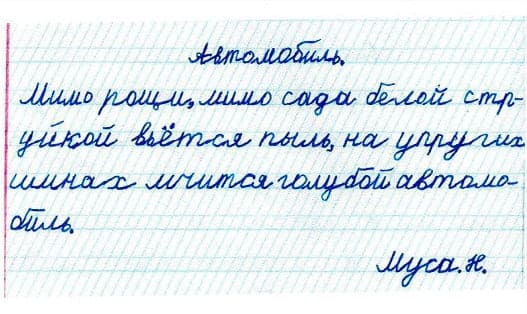 Автомобиль.
Мимо рощи, мимо сада белой стр-
уйкой вьётся пыль, на упругих
шинах мчится голубой автомо-
биль.
Муса. Н.